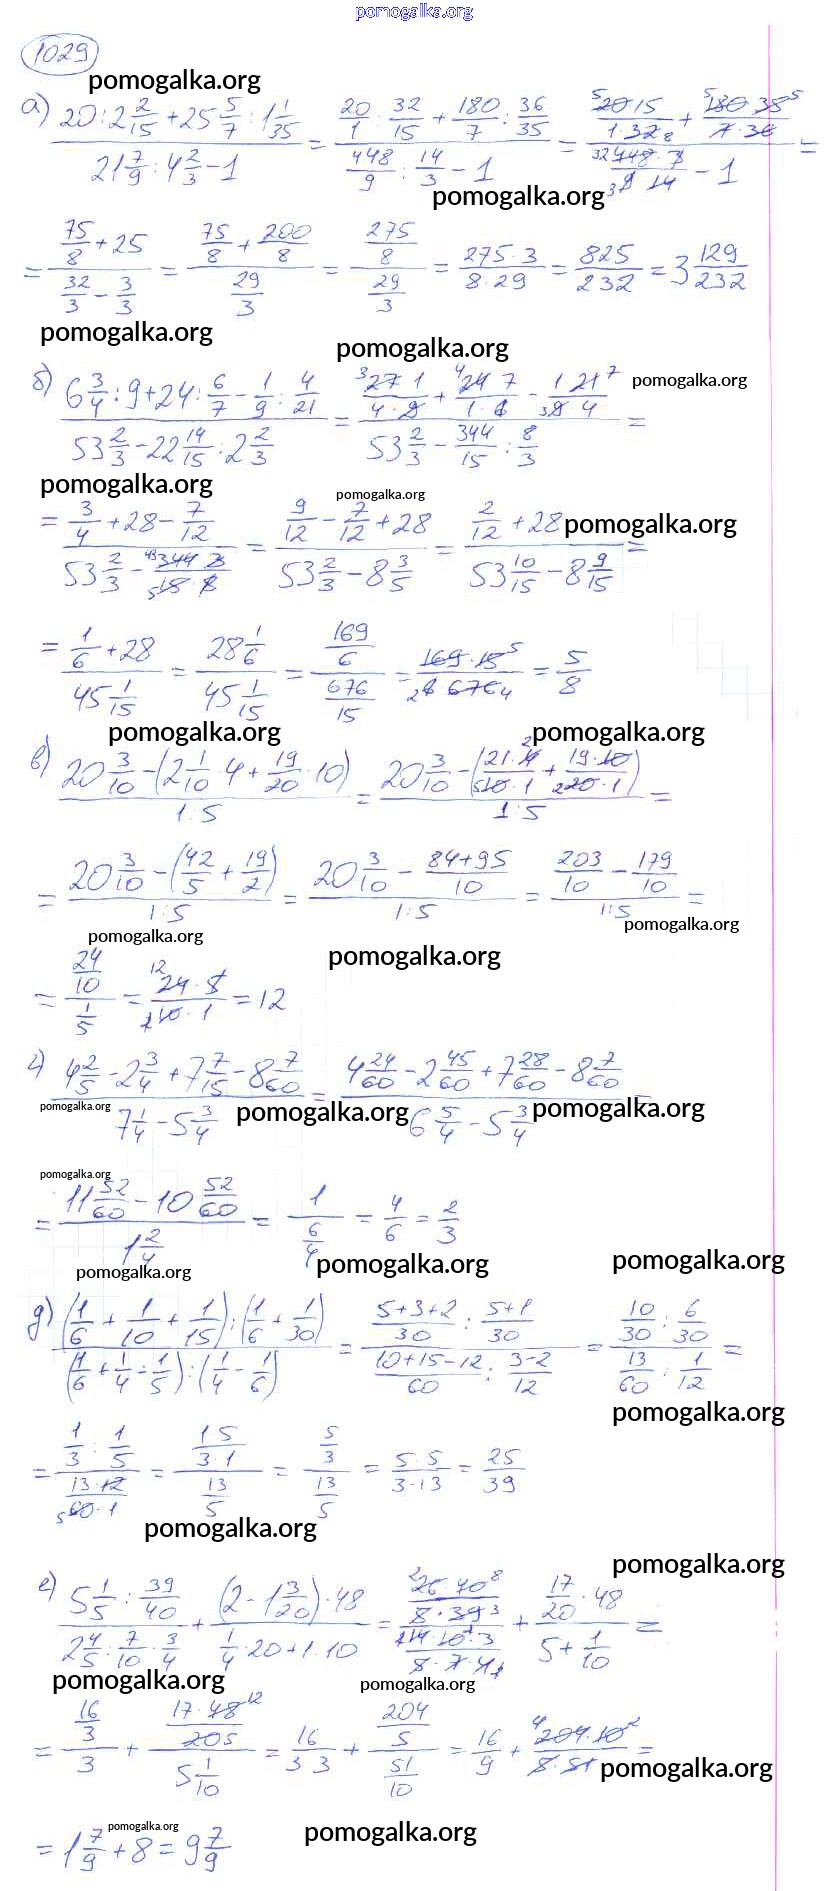 pomogalka.org
1029
pomogalka.org
а) (20 : 2 2/15 + 25 5/7 : 1 1/35) / (21 7/9 : 4 2/3 - 1) = (20/1 : 32/15 + 180/7 : 36/35) / (448/9 : 14/3 - 1) = ((20·15)/(1·32) + (180·35)/(7·36)) / ((448·3)/(9·14) - 1) =
pomogalka.org
= (75/8 + 25) / (32/3 - 3/3) = (75/8 + 200/8) / (29/3) = (275/8) / (29/3) = (275·3)/(8·29) = 825/232 = 3 129/232
pomogalka.org pomogalka.org
б) (6 3/4 : 9 + 24 : 6/7 - 1/9 : 4/21) / (53 2/3 - 22 14/15 : 2 2/3) = ((27·1)/(4·9) + (24·7)/(1·6) - (1·21)/(9·4)) / (53 2/3 - 344/15 : 8/3) =
pomogalka.org
pomogalka.org pomogalka.org
= (3/4 + 28 - 7/12) / (53 2/3 - (344·3)/(15·8)) = (9/12 - 7/12 + 28) / (53 2/3 - 8 3/5) = (2/12 + 28) / (53 10/15 - 8 9/15) =
pomogalka.org
= (1/6 + 28) / (45 1/15) = (28 1/6) / (45 1/15) = (169/6) / (676/15) = (169·15)/(6·676) = 5/8
pomogalka.org pomogalka.org
в) (20 3/10 - (2 1/10 · 4 + 19/20 · 10)) / (1:5) = (20 3/10 - ((21·4)/(10·1) + (19·10)/(20·1))) / (1:5) =
= (20 3/10 - (42/5 + 19/2)) / (1:5) = (20 3/10 - (84+95)/10) / (1:5) = (203/10 - 179/10) / (1:5) =
pomogalka.org pomogalka.org pomogalka.org
= (24/10) / (1/5) = (24·5)/(10·1) = 12
г) (4 2/5 - 2 3/4 + 7 7/15 - 8 7/60) / (7 1/4 - 5 3/4) = (4 24/60 - 2 45/60 + 7 28/60 - 8 7/60) / (6 5/4 - 5 3/4) =
pomogalka.org pomogalka.org pomogalka.org
pomogalka.org
= (11 52/60 - 10 52/60) / (1 2/4) = 1 / (6/4) = 4/6 = 2/3
pomogalka.org pomogalka.org pomogalka.org
д) ((1/6 + 1/10 + 1/15) : (1/6 + 1/30)) / ((1/6 + 1/4 - 1/5) : (1/4 - 1/6)) = ((5+3+2)/30 : (5+1)/30) / ((10+15-12)/60 : (3-2)/12) = (10/30 : 6/30) / (13/60 : 1/12) =
pomogalka.org
= (1/3 : 1/5) / ((13·12)/(60·1)) = ((1 5)/(3·1)) / (13/5) = (5/3) / (13/5) = (5·5)/(3·13) = 25/39
pomogalka.org
pomogalka.org
е) (5 1/5 : 39/40) / (2 4/5 : 7/10 · 3/4) + ((2 - 1 3/20) · 48) / (1/4 · 20 + 1 · 10) = ((26·40)/(5·39)) / ((14·10·3)/(5·7·4)) + (17/20 · 48) / (5 + 1/10) =
pomogalka.org pomogalka.org
= (16/3) / 3 + ((17·48)/(20 5)) / (5 1/10) = 16/(3 3) + (204/5) / (51/10) = 16/9 + (204·10)/(5·51) =
pomogalka.org
= 1 7/9 + 8 = 9 7/9
pomogalka.org pomogalka.org